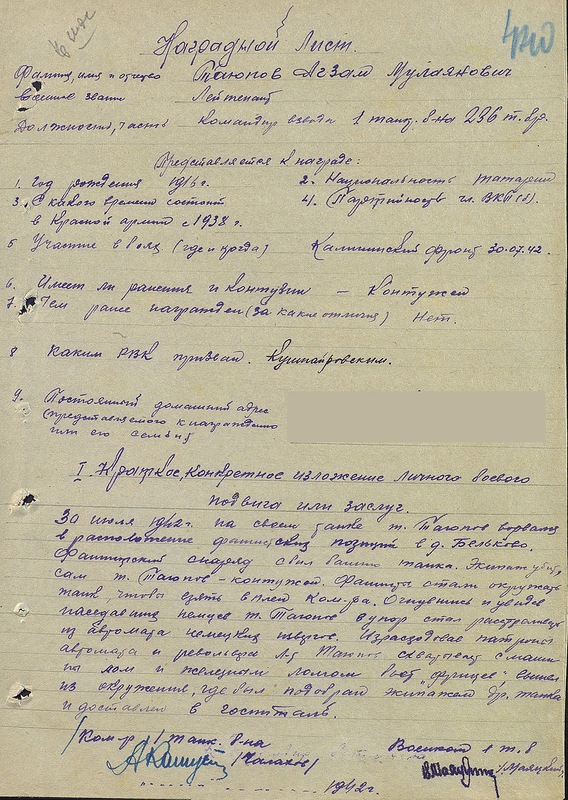 420
Наградной Лист.
Фамилия, имя и отчество Таюпов Агзам Мулаянович
Военное звание Лейтенант
Должность, часть Командир взвода 1 танк. б-на 236 т. бр.
Представляется к награде:
1. Год рождения 1916 г. 2. Национальность татарин
3. С какого времени состоит 4. Партийность чл. ВКП(б).
в Красной армии с 1938 г.
5 Участие в боях (где и когда) Калининский фронт 30.07.42.
6. Имеет ли ранения и контузии — Контужен
7. Чем ранее награжден (за какие отличия) Нет.
8 Каким РВК призван. Кушнаровским.
9. Постоянный домашний адрес
(представляемого к награждению
или его семьи)
I. Краткое, конкретное изложение личного боевого
подвига или заслуг.
30 июля 1942 г. на своем танке т. Таюпов ворвался
в расположение фашистских позиций в д. Бельково.
Фашистский снаряд сбил башню танка. Экипаж убит,
сам т. Таюпов – контужен. Фашисты стали окружать
танк, чтобы взять в плен Ком-ра. Очнувшись и увидев
наседавших немцев т. Таюпов в упор стал расстреливать
из автомата немецких
Израсходовав патроны
автомата и револьвера л-т Таюпов схватил с маши
ны лом и железным ломом бьет "фрицев", вышел
из окружения, где был подобран экипажем др. танка
и доставлен в госпиталь.
Ком-р 1 танк. б-на Военком 1 т. б
/Маяцкий/
1942 г.